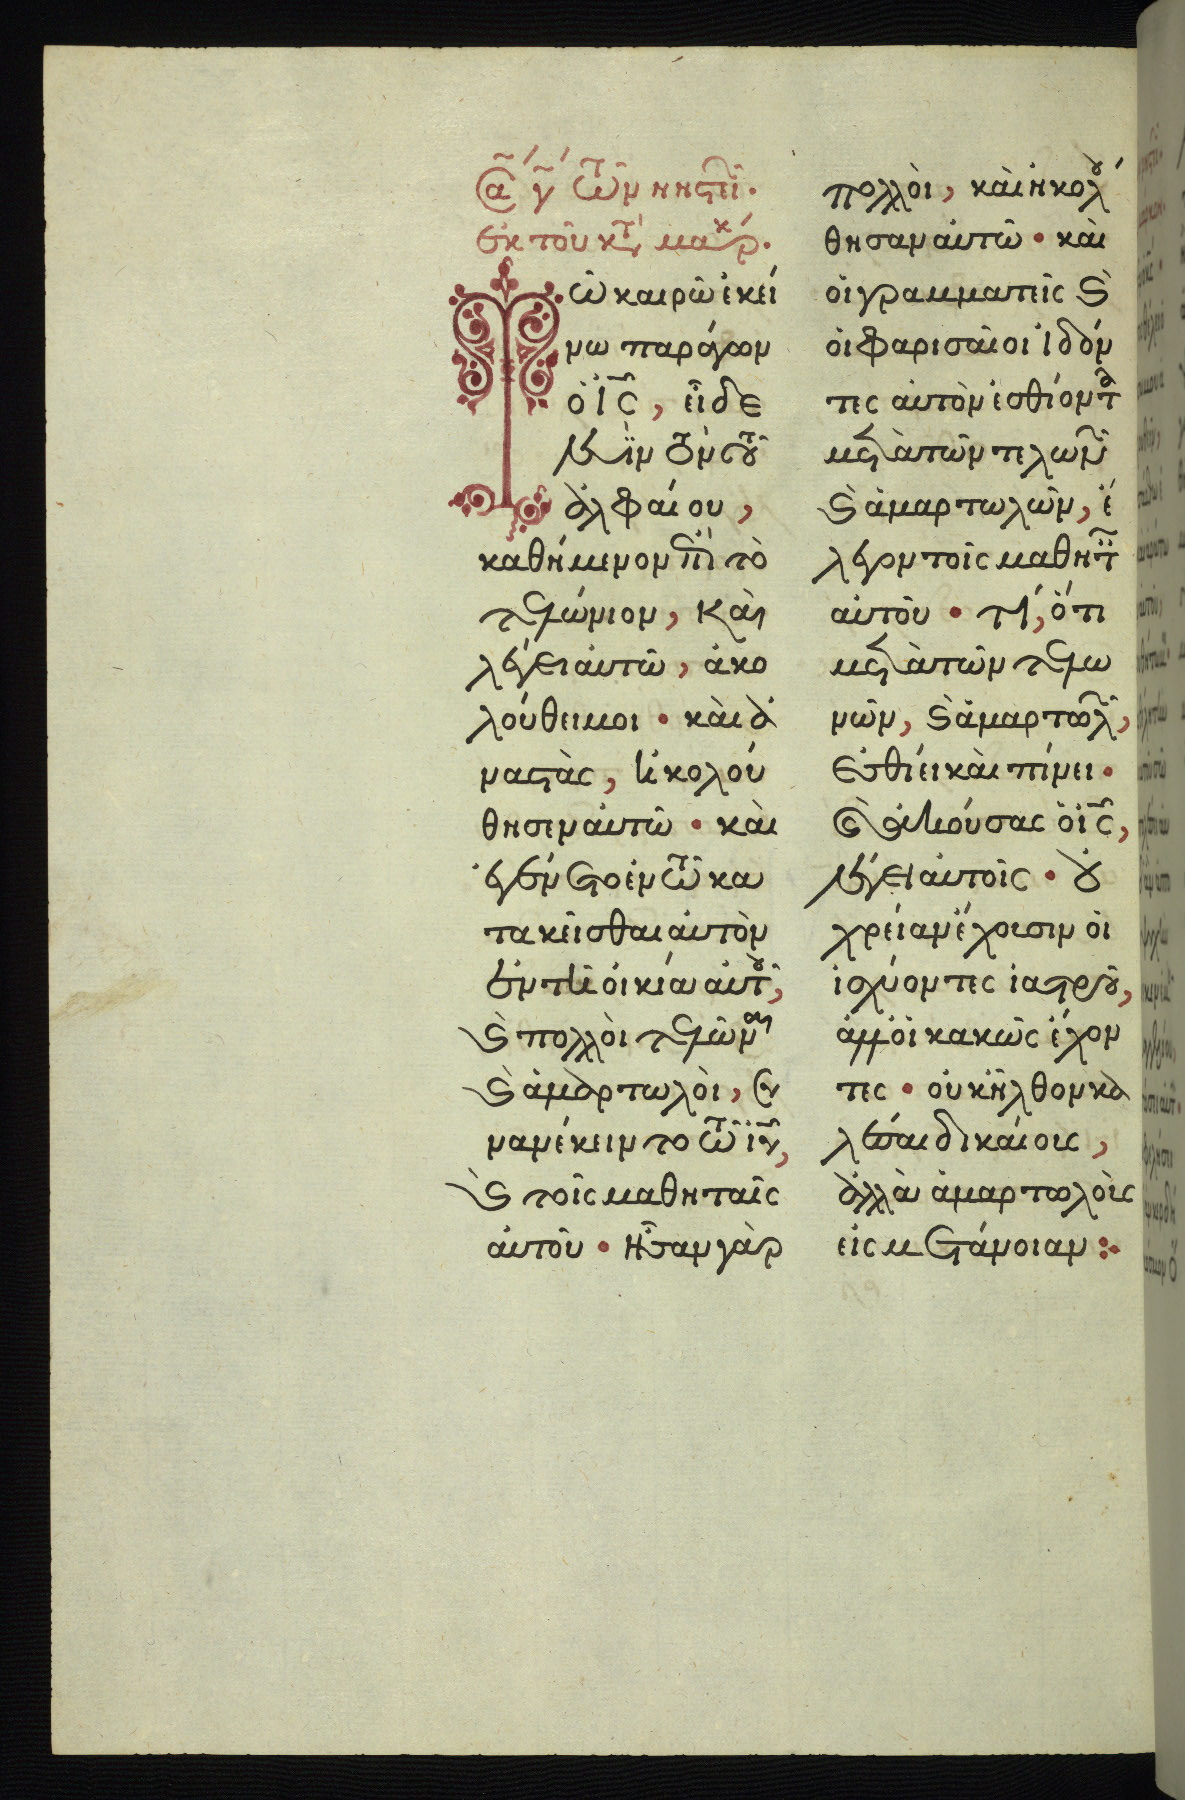 Σα γ τῶν νηστει.
ἐκ τοῦ κτ μαρκ.
Τῶ καιρῶ ἐκεί
νω παράγων
ὁ ἰς, εἶδε
λευὶν τὸν τοῦ
ἀλφαίου,
καθήμενον ἐπὶ τὸ
τελώνιον, καὶ
λέγει αὐτῶ, ἀκο
λούθει μοι • καὶ ἀ
ναστὰς, ἠκολού
θησεν αὐτῶ • καὶ
ἐγένετο ἐν τῶ κα
τακεῖσθαι αὐτὸν
ἐν τῆ οἰκία αὐτοῦ,
καὶ πολλοὶ τελῶναι
καὶ ἁμαρτωλοὶ, συ
νανέκειντο τῶ ἰυ,
καὶ τοῖς μαθηταῖς
αὐτοῦ • ἦσαν γὰρ
πολλοὶ, καὶ ἠκολού
θησαν αὐτῶ • καὶ
οἱ γραμματεῖς καὶ
οἱ φαρισαῖοι ἰδόν
τες αὐτὸν ἐσθίοντα
μετὰ τῶν τελωνῶν
καὶ ἁμαρτωλῶν, ἔ
λεγον τοῖς μαθηταῖς
αὐτοῦ • τί, ὅτι
μετὰ τῶν τελω
νῶν, καὶ ἁμαρτωλῶν,
ἐσθίει καὶ πίνει •
καὶ ἀκούσας ὁ ἰς,
λέγει αὐτοῖς • οὐ
χρείαν ἔχουσιν οἱ
ἰσχύοντες ἰατροῦ,
ἀλλ οἱ κακῶς ἔχον
τες • οὐκ ἦλθον κα
λέσαι δικαίους,
ἀλλὰ ἁμαρτωλοὺς
εἰς μετάνοιαν :•